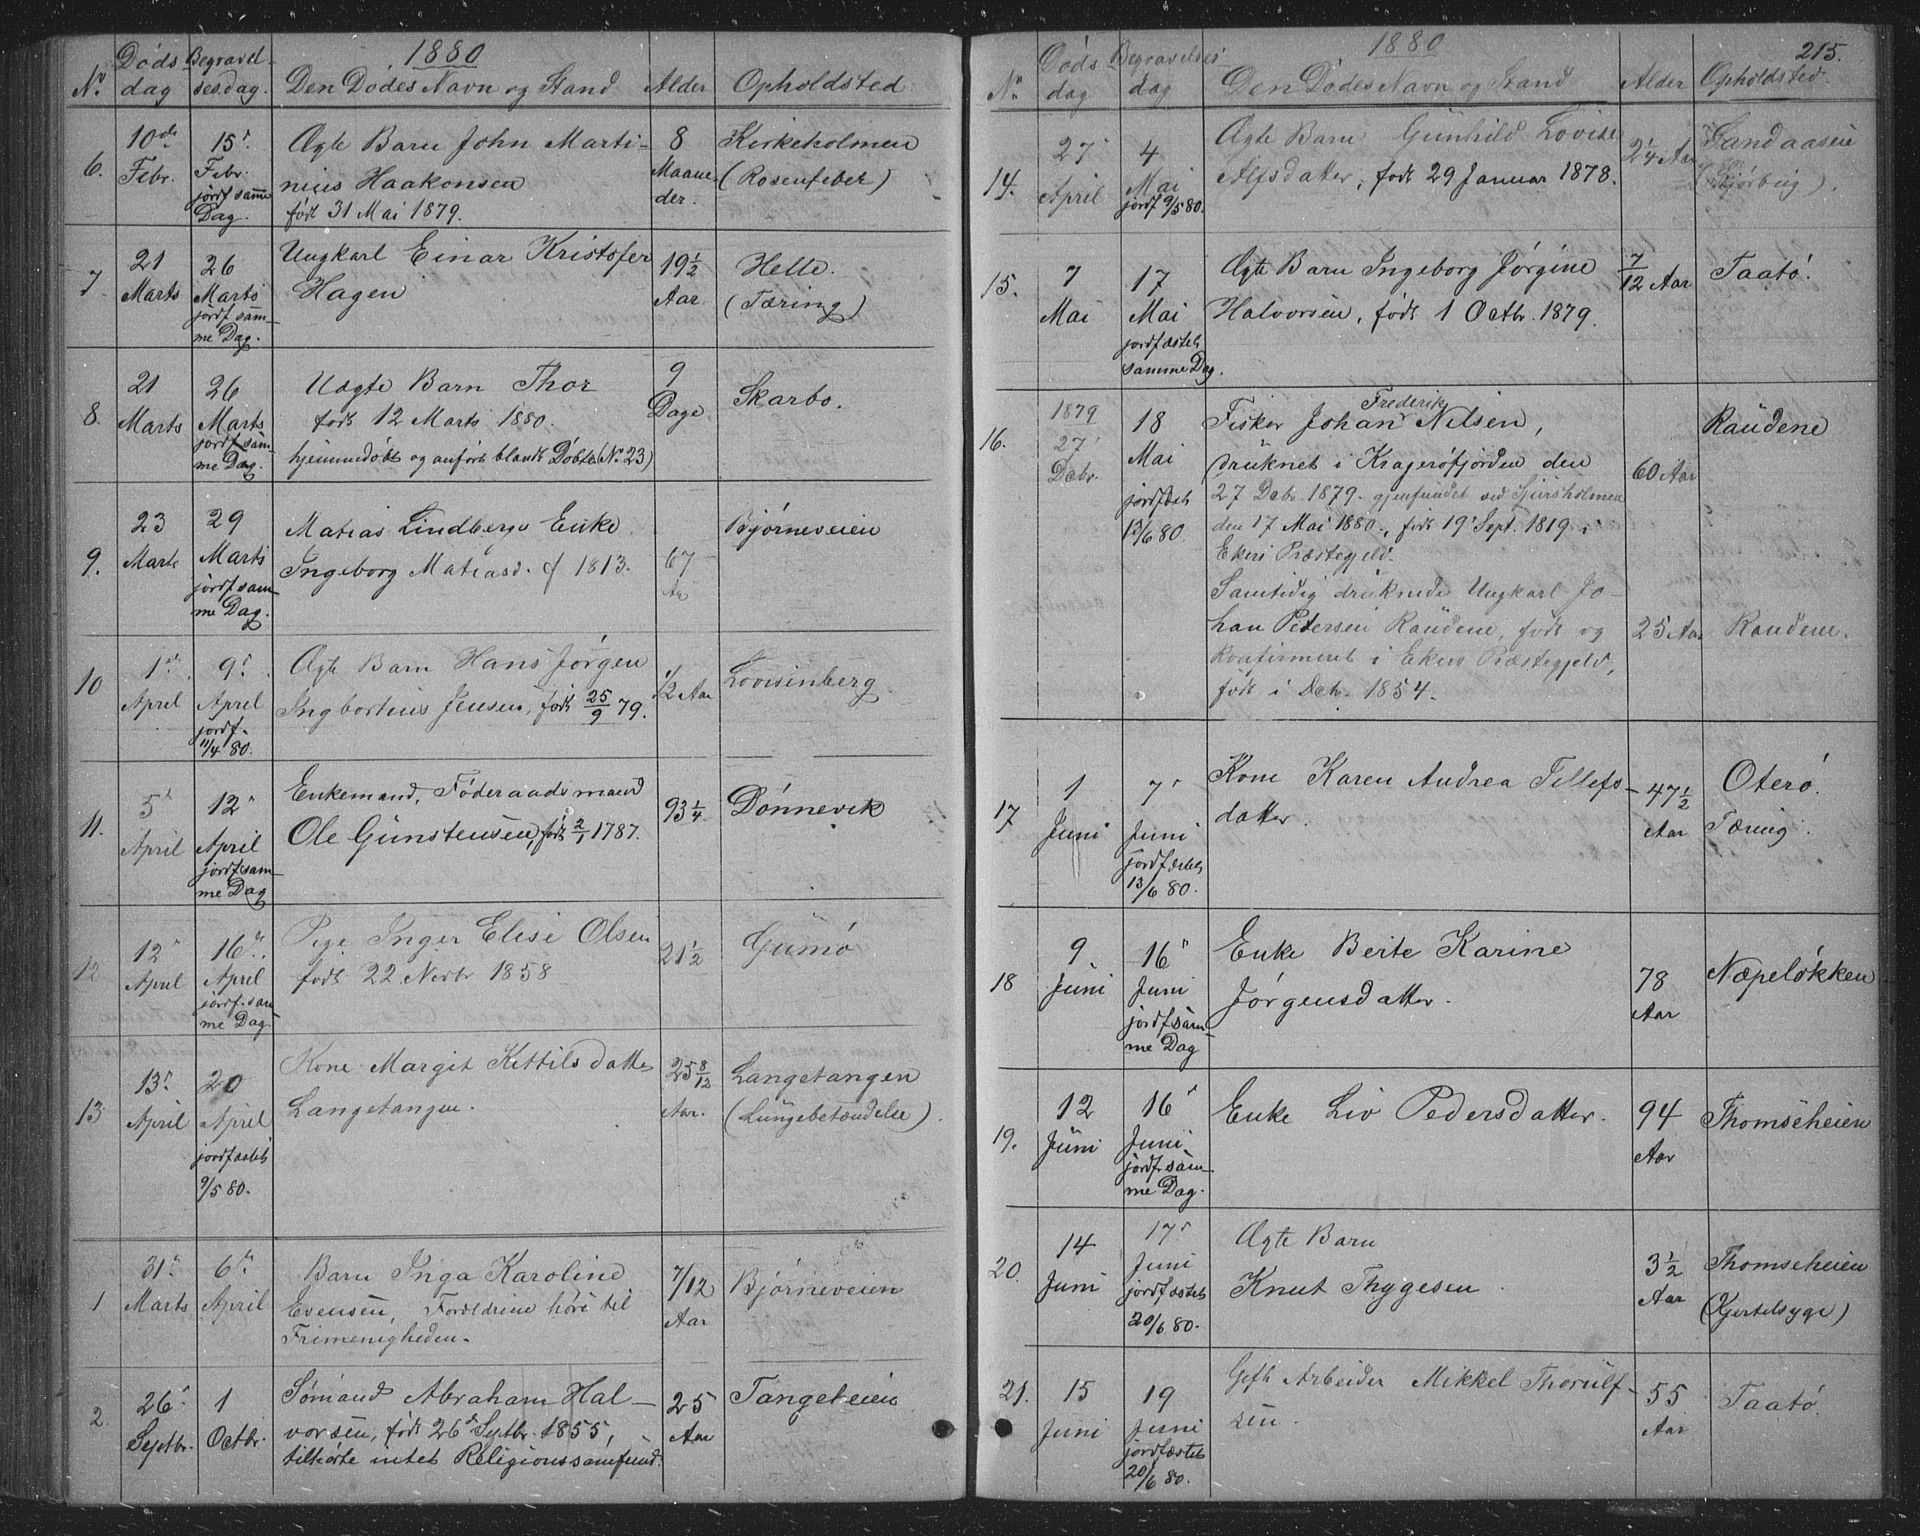 1880
No. Døds dag Begravelsesdag. Den Dødes Navn og Stand Alder Opholdsted.
6. 10de Febr. 15' Febr. jordf samme Dag. Ægte Barn John Marti-
nius Haakonsen
født 31 Mai 1879.
8 Maaneder. Kirkeholmen
(Rosenfeber)
7 21 Marts 26 Marts jordf samme Dag. Ungkarl Einar Kristofer
Hagen
19 1/2 Aar Helle.
(Tæring)
8. 21 Marts 26 Marts jordf samme Dag. Uægte Barn Thor
født 12 Marts 1880.
hjemmedøbt og anført blandt Døbte (No. 23)
9 Dage Skarbo.
9. 23 Marts 29 Marts jordf samme Dag. Matias Lindbergs Enke
Ingeborg Matiasd. f 1813.
67 Aar Bjørneveien
10 1ste April 9' April jordf. 11/4 80. Ægte Barn Hans Jørgen
Ingbortius Jensen, født 25/9 79.
1/2 Aar Lovisenberg
11. 5' April 12' April jordf samme Dag Enkemand, Føderaadsmand
Ole Gunstensen, født 2/1 1787.
93 1/4 Dønnevik
12 12' April 16' April jordf. samme Dag. Pige Inger Elise Olsen
født 22 Novbr 1858
21 1/2 Gumø
13 13' April 20 April jordfæstet 9/5 80. Kone Margit Kittilsdatter
Langetangen.
25 8/12 Aar. Langetangen
(Lungebetændelse).
1 31' Marts 6' April Barn Inga Karoline
Evensen, Forældrene høre til
Frimenigheden.
7/12 Aar Bjørneveien
2. 26' Septbr. 1 Octbr. Sømand Abraham Hal-
vorsen, født 26' Septbr. 1855,
tilhørte intet Religionssamfund.
25 Aar Tangeheien
1880
215.
No. Døds dag Begravelses dag Den Dødes Navn og Stand Alder Opholdsted.
14. 27' April 4 Mai jordf 9/5 80. Ægte Barn Gunhild Lovise
Alfsdatter, født 29 Januar 1878.
2 1/4 Aar Sandaasen
15. 7 Mai 17 Mai jordfæstet samme Dag. Ægte Barn Ingeborg Jørgine
Halvorsen, født 1 Octbr. 1879.
7/12 Aar Taatø.
16. 1879 27' Dcbr. 18 Mai jordfæst 13/6 80. Fisker Johan Frederik Nilsen,
druknet i Kragerøfjorden den
27 Dcbr 1879. gjenfundet ved Sjursholmen
den 17 Mai 1880., født 19' Sept. 1819 i
Ekers Præstegjeld.
60 Aar Raudene
Samtidig druknede Ungkarl Jo-
han Petersen Raudene, født og
konfirmeret i Ekers Præstegjeld,
født i Dcbr. 1854.
25 Aar Raudene.
17 1 Juni 7' Juni jordfæstet 13/6 80. Kone Karen Andrea Tellefs-
datter.
47 1/2 Aar Oterø.
Tæring.
18 9. Juni 16' Juni jordf samme Dag Enke Berte Karine
Jørgensdatter.
78 Aar Næpeløkken
19. 12 Juni 16' Juni jordf. samme Dag. Enke Liv Pedersdatter.
94 Aar Thomseheien
20. 14 Juni 17' Juni jordfæstet 20/6 80. Ægte Barn
Knut Thygesen.
3 1/2 Aar Thomseheien
(Kjertelsyge)
21. 15 Juni 19 Juni jordfæstet 20/6 80. Gift Arbeider Mikkel Thorulf-
sen.
55 Aar Taatø.